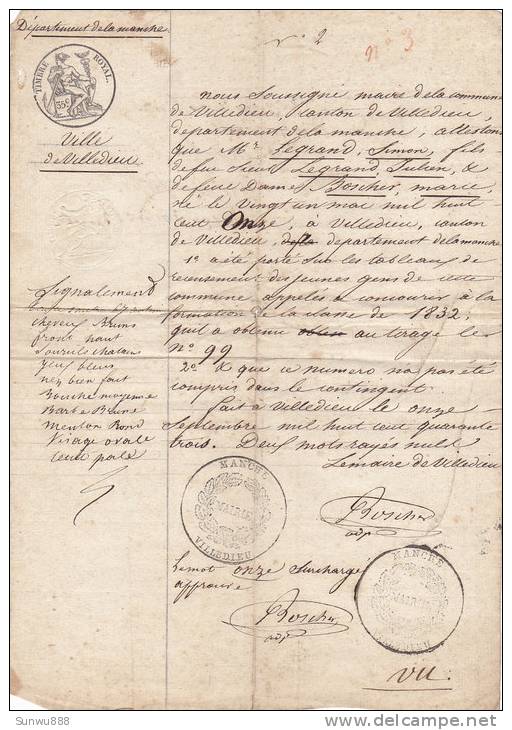 Département de la manche
TIMBRE ROYAL
35c
Ville
de Villedieu
n° 2
n° 3
nous soussigné maire de la commune
de Villedieu, canton de Villedieu,
département de la manche, attestons
que Mr Legrand, Simon, fils
de feu Sieur Legrand, Julien, &
de feue Dame Boscher, marie,
né le vingt un mai mil huit
cent Onze, à Villedieu, canton
de Villedieu, departement de la manche
1° a été porté sur les tableaux de
recensement des jeunes gens de cette
commune appelés à concourir à la
formation de la classe de 1832;
qu'il a obtenu au tirage le
N° 99
2° & que ce numero n'a pas été
compris dans le contingent.
fait à Villedieu le onze
Septembre mil huit cent quarante
trois. Deux mots rayés nuls
Lemaire de Villedieu
Signalement
cheveux Bruns
front haut
Sourcils chatains
yeux bleus
nez bien fait
Bouche moyenne
Barbe Brune
Menton Rond
Visage ovale
teint pale
MANCHE
MAIRIE
VILLEDIEU
Boscher
adjt
Le mot onze Surchargé
approuvé
Boscher
adjt
MANCHE
MAIRIE
VILLEDIEU
VU.
Sunwu888
delcampe.net